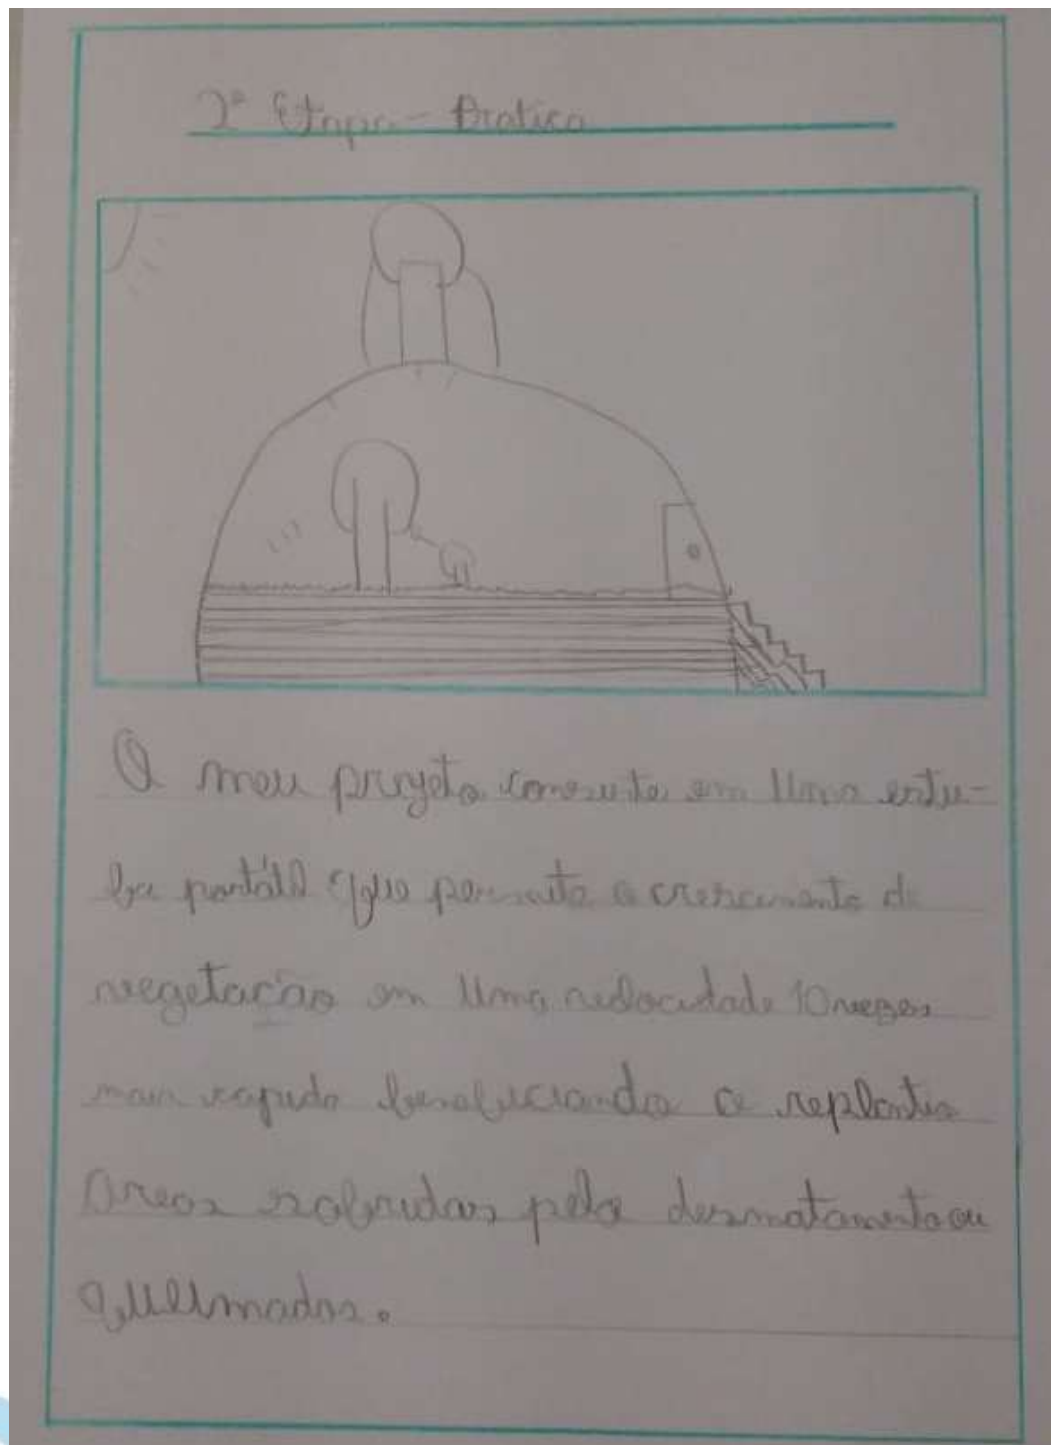 2ª Etapa - Pratica
O meu projeto consiste em Uma estu-
fa portátil que permite o crescimento de
vegetação em Uma velocidade 10 vezes
mais rapido beneficiando o replantio
areas sofridas pelo desmatamento ou
queimadas.